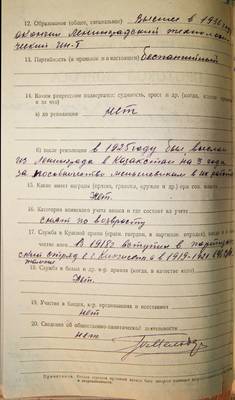 12. Образование (общее, специальное) Высшее в 1930 году
окончил Ленинградский технологи-
ческий ин-т
13. Партийность (в прошлом и в настоящем) Беспартийный
14. Каким репрессиям подвергался: судимость, арест и др. (когда, каким органом
и за что)
а) до революции нет
б) после революции в 1925 году был выслан
из Ленинграда в Казахстан на 3 года
за пособничество меньшевикам в их работе
15. Какие имеет награды (ордена, грамоты, оружие и др.) при сов. власти
Нет.
16. Категория воинского учета запаса и где состоит на учете
снят по возрасту
17. Служба в Красной армии (красн. гвардии, в партизан. отрядах), когда и в
качестве кого В 1918г. вступил в партизан-
ский отряд в г. и в 1919-1921
18. Служба в белых и др. к-р. армиях (когда, в качестве кого)
Нет.
19. Участие в бандах, к-р. организациях и восстаниях
нет
20. Сведения об общественно-политической деятельности
нет